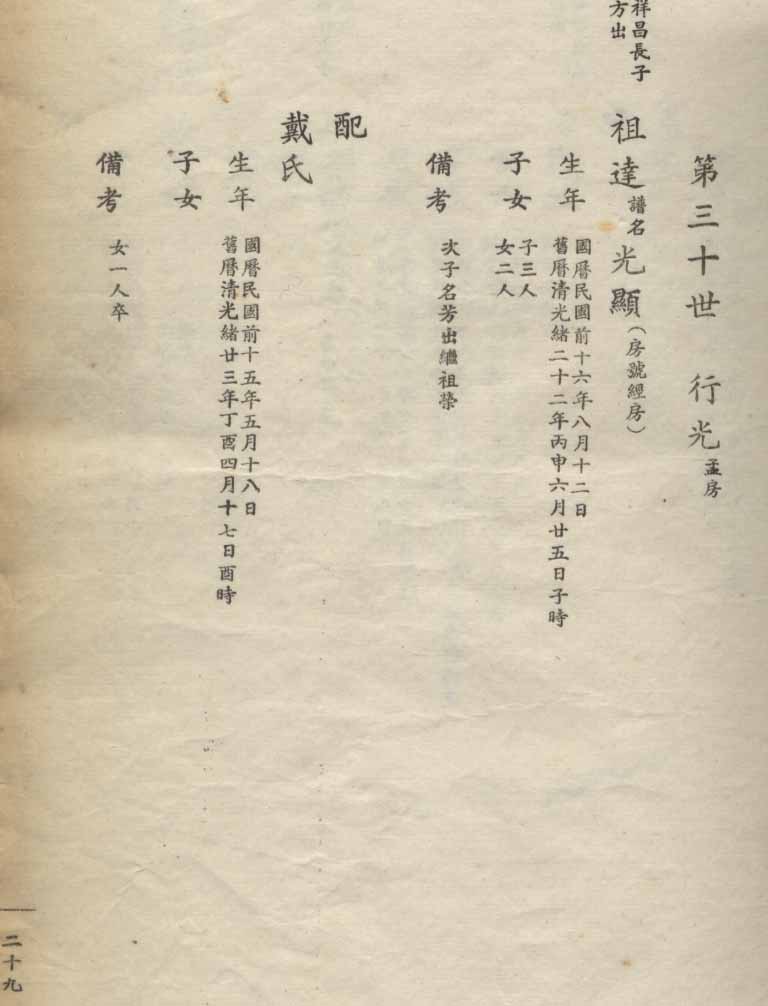 第三十世　行光孟房
祥昌長子
方出
祖達譜名光顯（房號經房）
生年
國曆民國前十六年八月十二日
舊曆清光緒二十二年丙申六月廿五日子時
子女
子三人
女二人
備考
次子名芳出繼祖榮
配
戴氏
生年
國曆民國前十五年五月十八日
舊曆清光緒廿三年丁酉四月十七日酉時
子女
備考
女一人卒
二十九